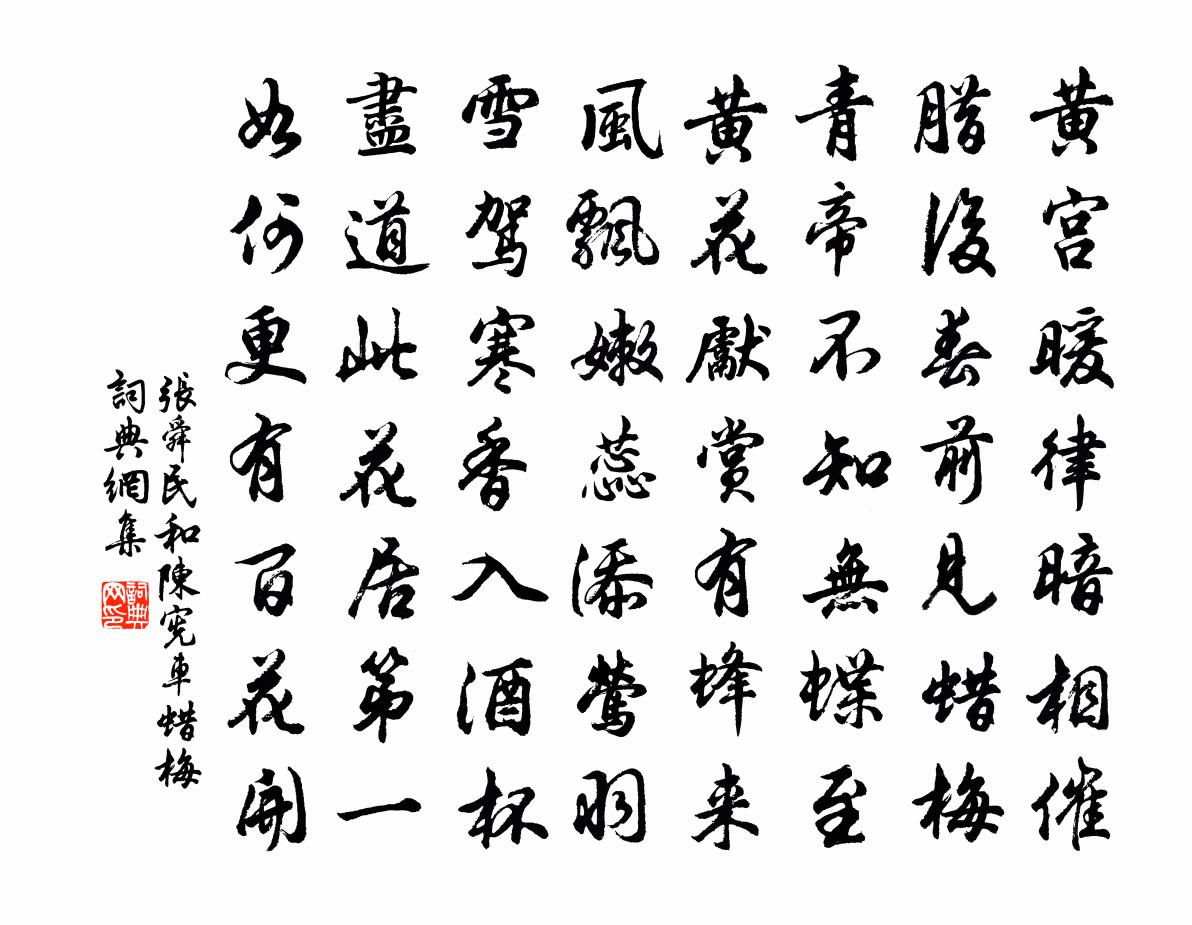 黄宫暖律暗相催
腊後春前見蜡梅
青帝不知無蝶至
黄花獻賞有蜂来
風飄嫩蕊添鶯羽
雪駕寒香入酒杯
盡道此花居第一
如何更有百花開
張舜民和陳宪車蜡梅
詞典網集
詞典网印